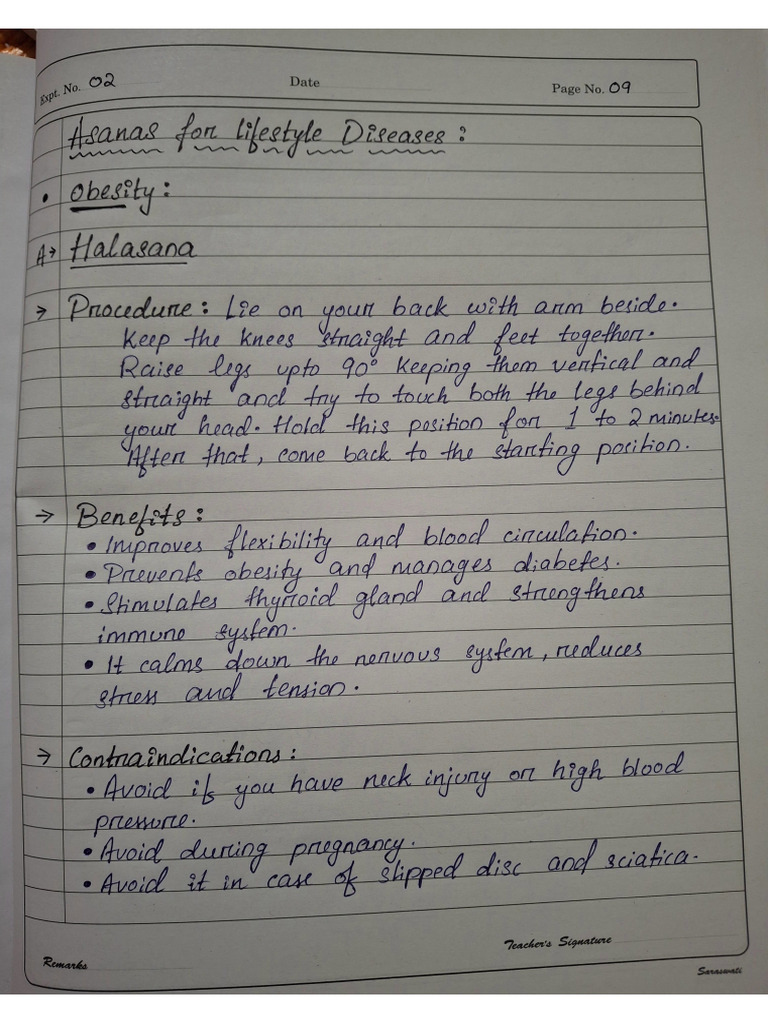 Expt. No. 02 Date Page No. 09
Asanas for Lifestyle Diseases:
• Obesity:
A→ Halasana
→ Procedure: Lie on your back with arm beside.
Keep the knees straight and feet together.
Raise legs upto 90° keeping them vertical and
straight and try to touch both the legs behind
your head. Hold this position for 1 to 2 minutes.
After that, come back to the starting position.
→ Benefits:
• Improves flexibility and blood circulation.
• Prevents obesity and manages diabetes.
• Stimulates thyroid gland and strengthens
immune system.
• It calms down the nervous system, reduces
stress and tension.
→ Contraindications:
• Avoid if you have neck injury or high blood
pressure.
• Avoid during pregnancy.
• Avoid it in case of slipped disc and sciatica.
Teacher's Signature
Remarks
Saraswati